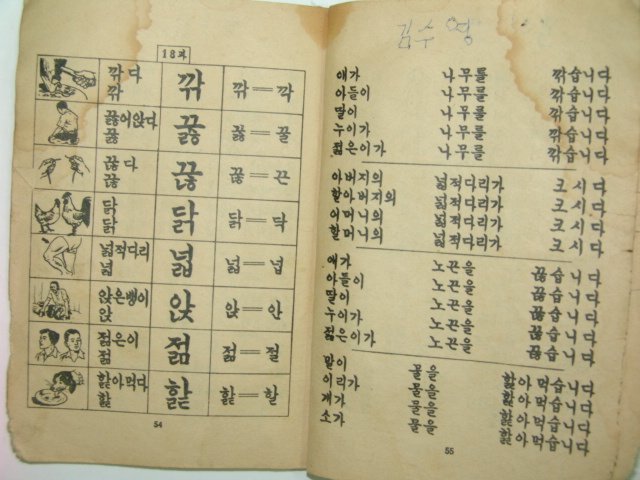 18과
깎다
깎
깎
깎=깍
꿇어앉다
꿇
꿇
꿇=꿀
끊다
끊
끊
끊=끈
닭
닭
닭
닭=닥
넓적다리
넓
넓
넓=넙
앉은뱅이
앉
앉
앉=안
젊은이
젊
젊
젊=절
핥아먹다
핥
핥
핥=할
54
김수영
애가 나무를 깎습니다
아들이 나무를 깎습니다
딸이 나무를 깎습니다
누이가 나무를 깎습니다
젊은이가 나무를 깎습니다
아버지의 넓적다리가 크시다
할아버지의 넓적다리가 크시다
어머니의 넓적다리가 크시다
할머니의 넓적다리가 크시다
애가 노끈을 끊습니다
아들이 노끈을 끊습니다
딸이 노끈을 끊습니다
누이가 노끈을 끊습니다
젊은이가 노끈을 끊습니다
말이 물을 핥아먹습니다
이리가 물을 핥아먹습니다
개가 물을 핥아먹습니다
소가 물을 핥아먹습니다
55